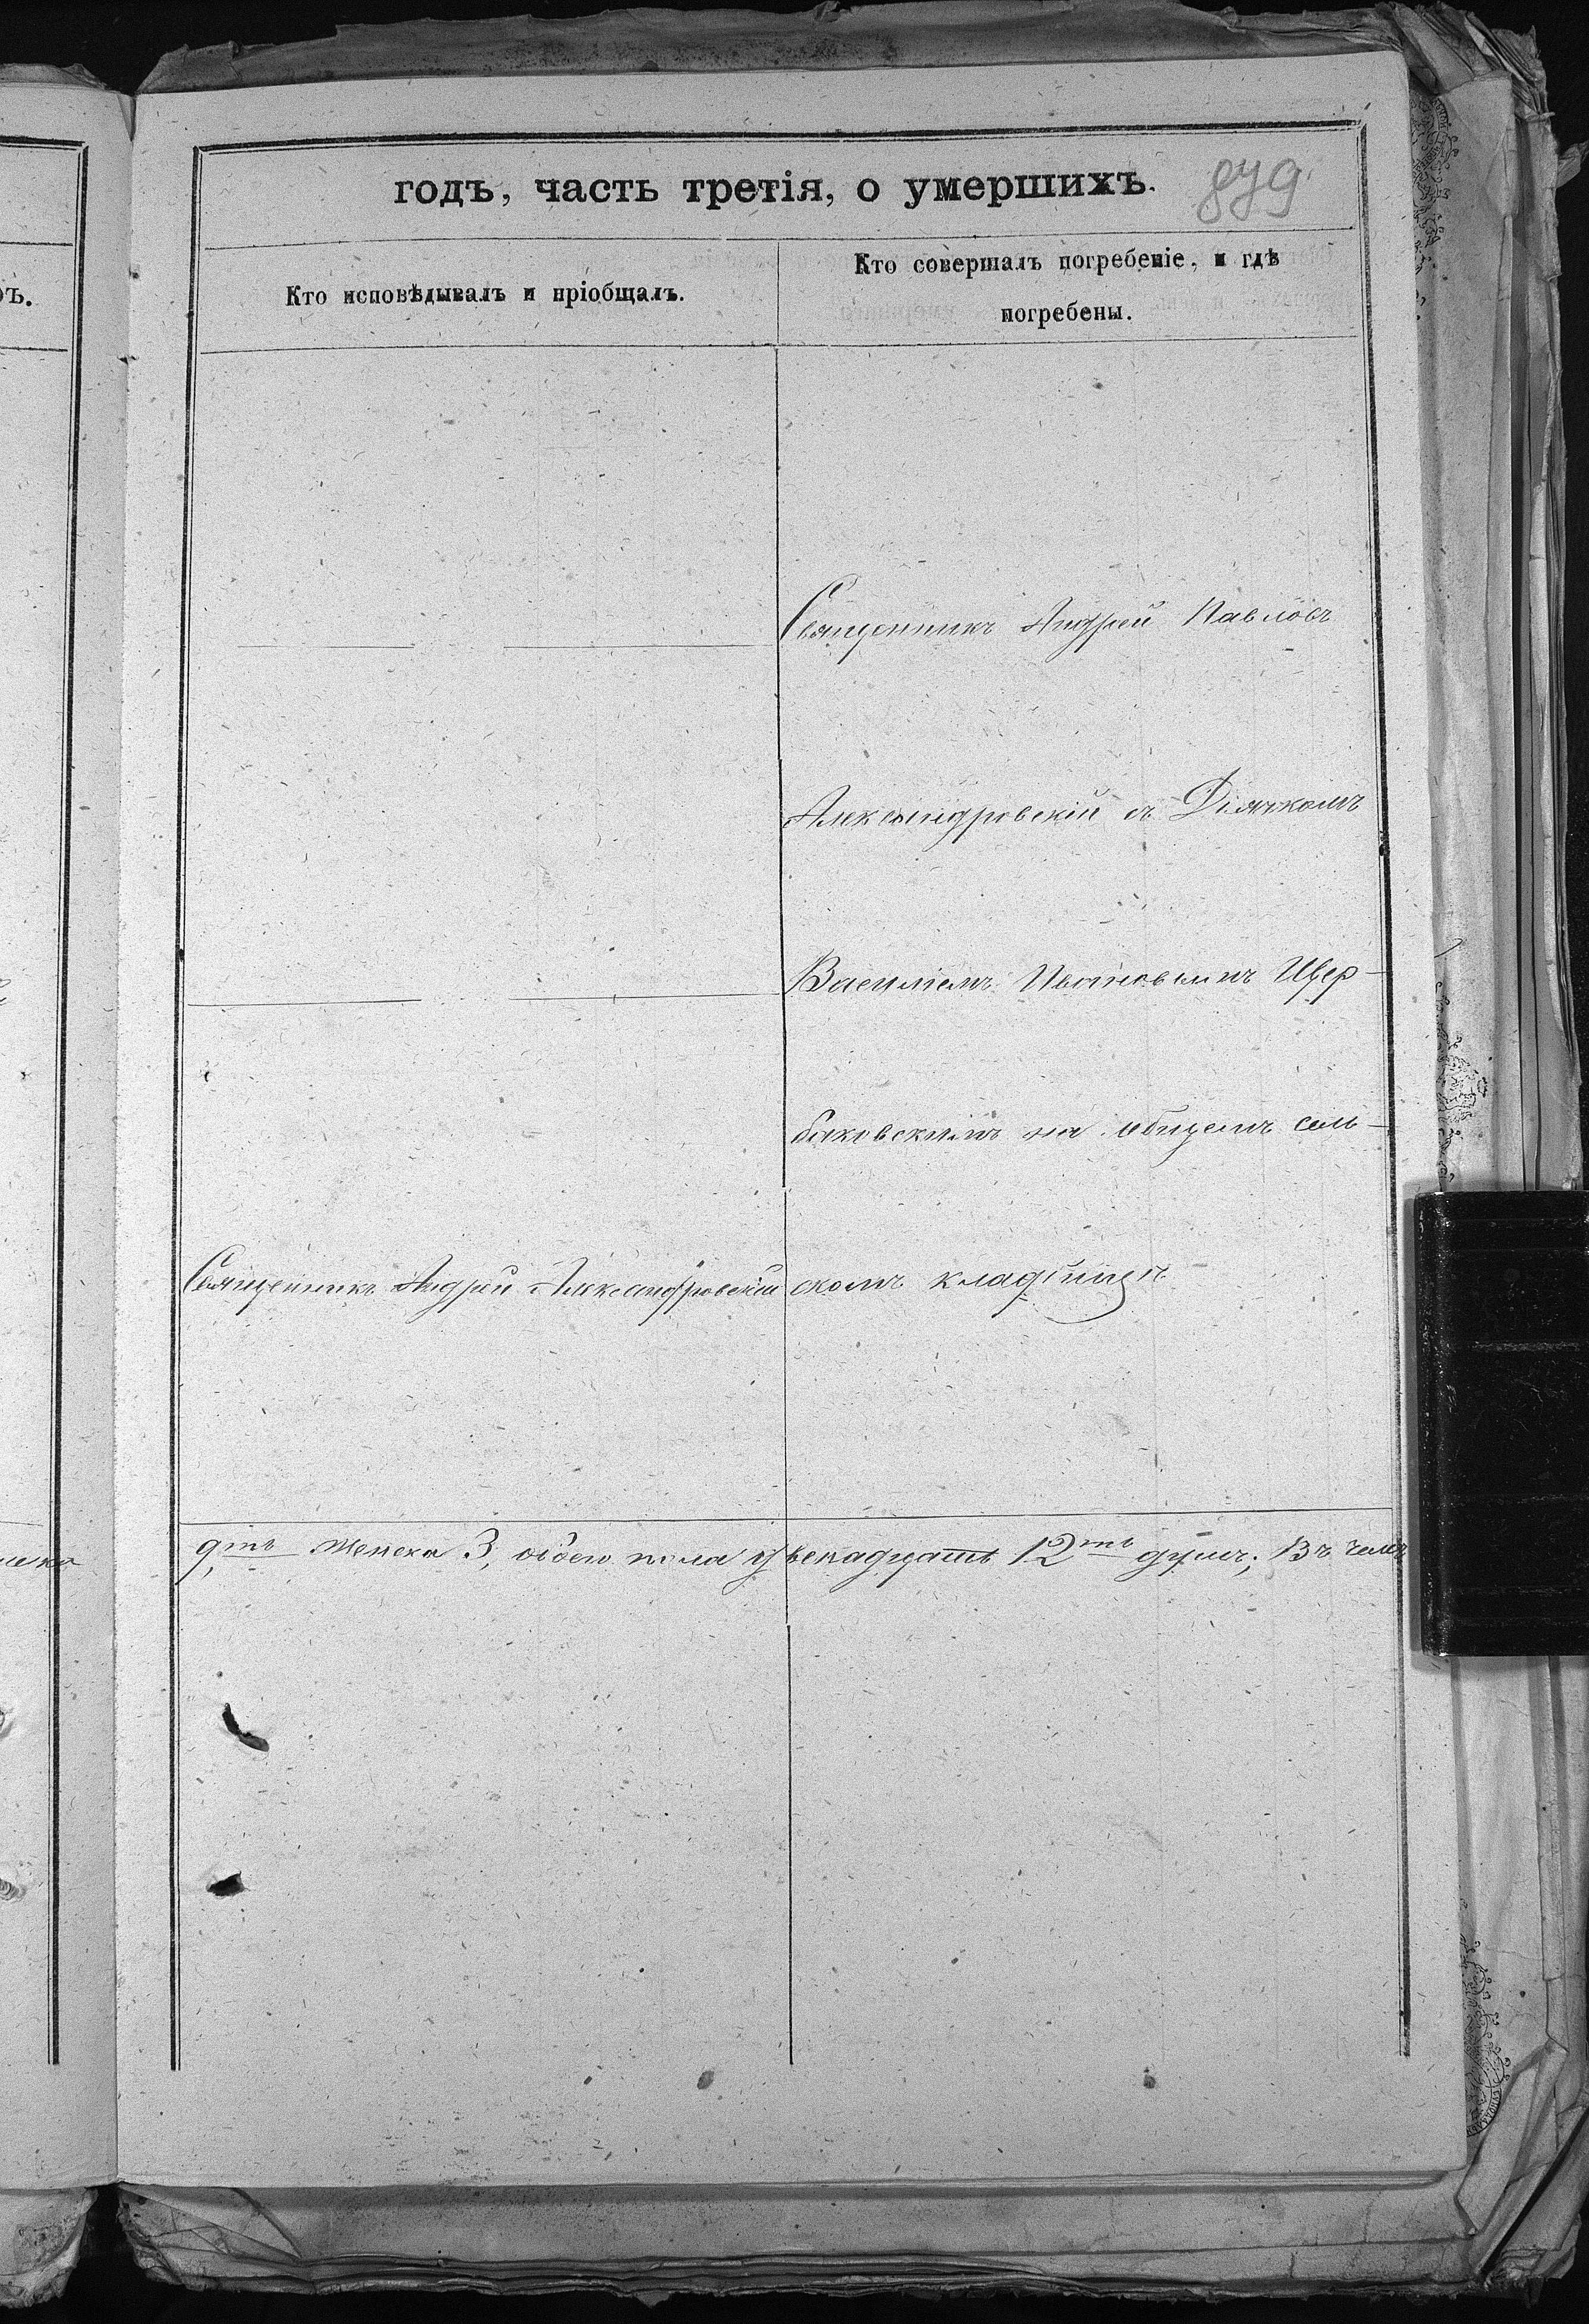 годъ, часть третія, о умершихъ. 879
Кто исповѣдывалъ и пріобщалъ.
Кто совершалъ погребеніе, и гдѣ
погребены.
Священникъ Андрей Павловъ
Александровскій съ Дьячкомъ
Василіемъ Ивановымъ Щер-
баковскимъ на общемъ сель-
Священникъ Андрей Александровскій
скомъ кладбищѣ
9, ть женска 3, обоего пола двенадцать 12ть душъ; Въ чемъ